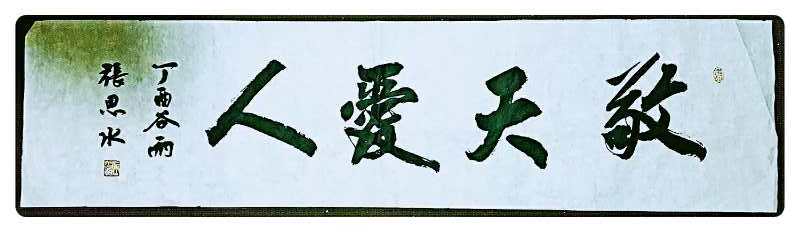 敬天愛人
丁酉谷雨
張思水